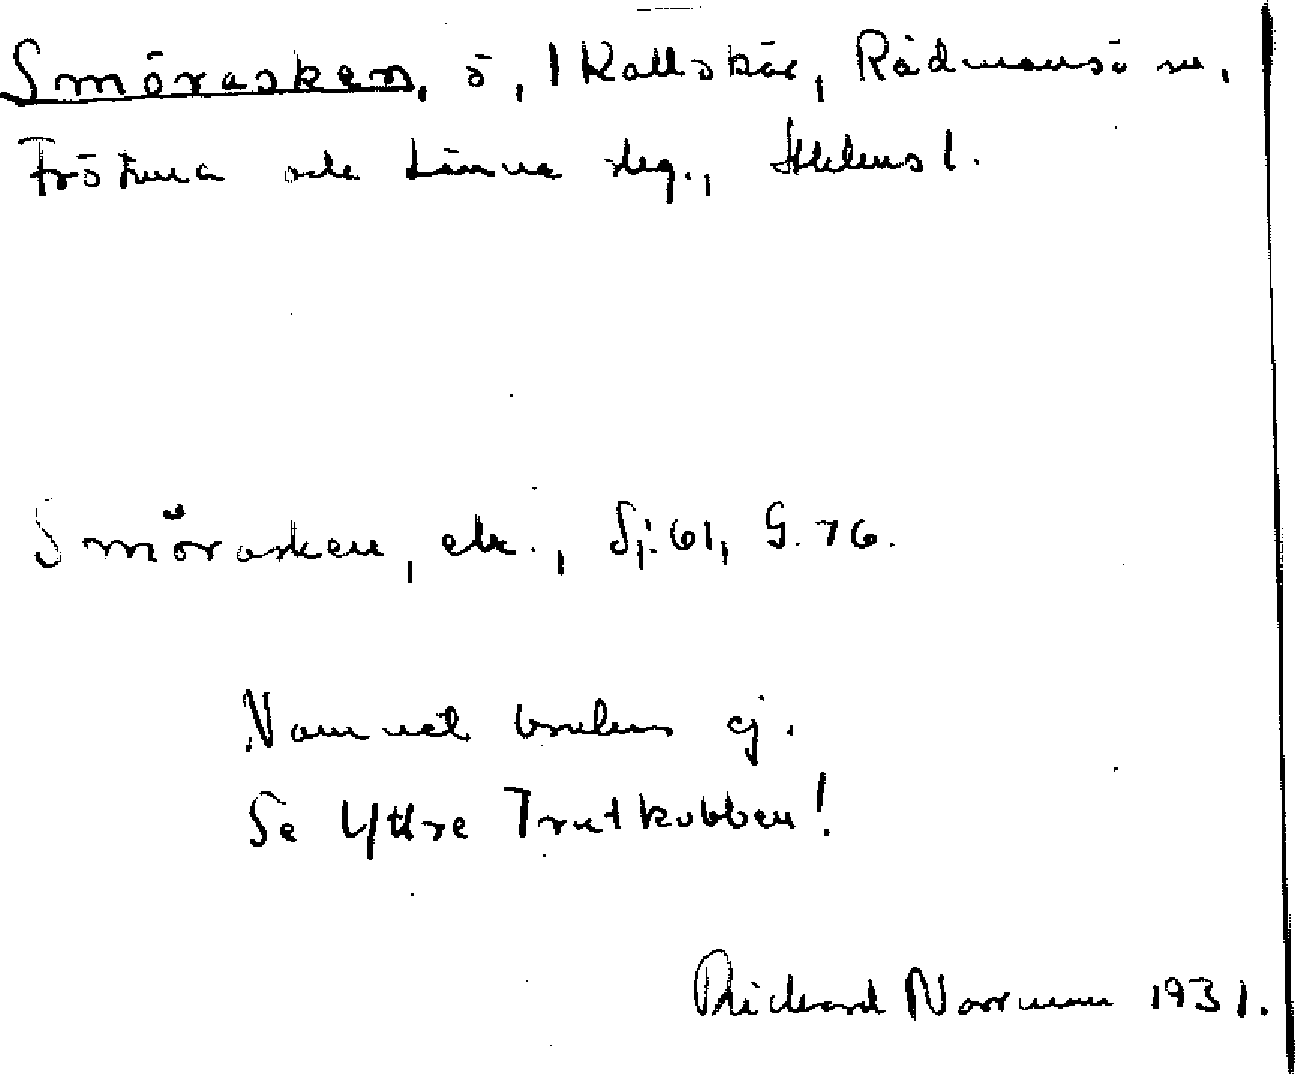 Smörasken, ö, 1 Kallskär, Rådmansö sn,
Frötuna och Länna skg., Sthlms l.
Smörasken, ek., Sj: 61, G. 76.
Namnet brukas ej.
Se Yttre Trutkubben!
Rickard Norrman 1931.